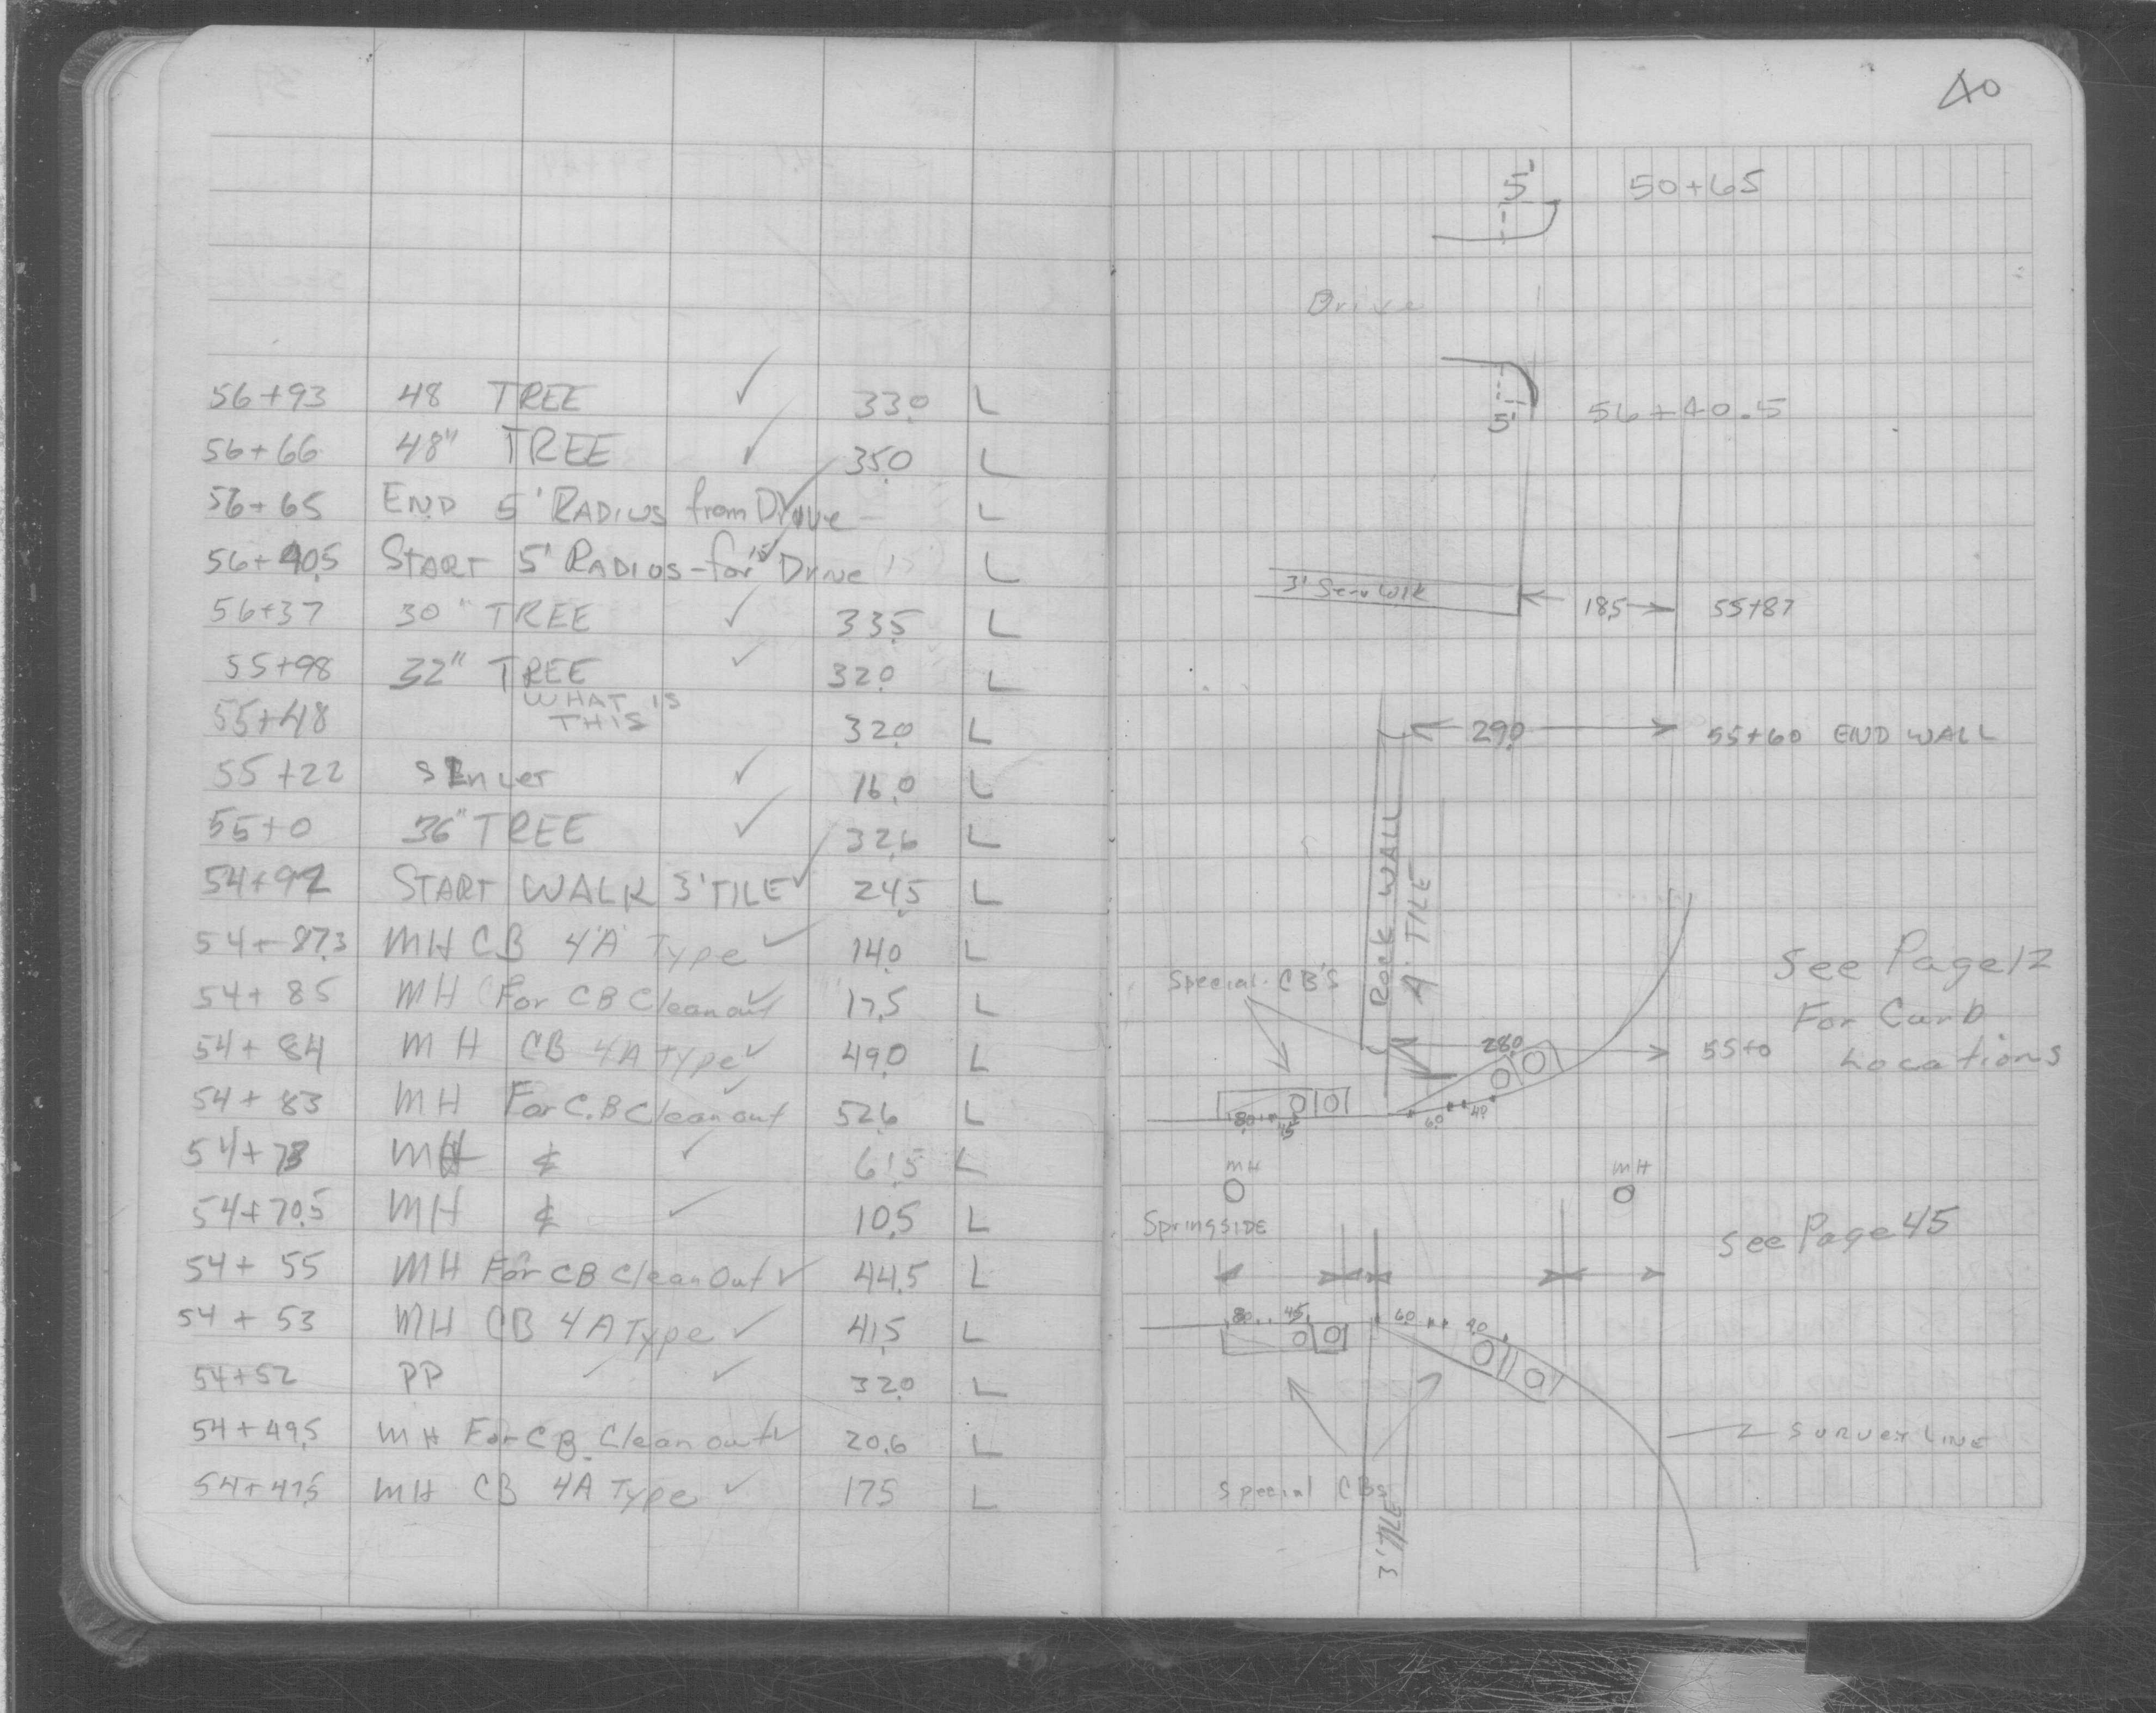 40
56+93 48 TREE ✓ 33.0 L
56+66 48" TREE ✓ 35.0 L
56+65 END 5' RADIUS from Drive - ✓ L
56+40.5 START 5' RADIUS - for 15' Drive (15') L
56+37 30" TREE ✓ 33.5 L
55+98 32" TREE ✓ 32.0 L
WHAT IS
55+48 THIS 32.0 L
55+22 ✓ 16.0 L
55+0 36" TREE ✓ 32.6 L
54+92 START WALK 3' TILE ✓ 24.5 L
54+87.3 MH CB 4'A' Type ✓ 14.0 L
54+85 MH For CB Cleanout ✓ 17.5 L
54+84 MH CB 4A Type ✓ 49.0 L
54+83 MH For C.B Cleanout ✓ 52.6 L
54+73 MH ¢ ✓ 61.5 L
54+70.5 MH ¢ ✓ 10.5 L
54+55 MH For CB Clean Out ✓ 44.5 L
54+53 MH CB 4A Type ✓ 41.5 L
54+52 PP ✓ 32.0 L
54+49.5 MH For CB. Clean out ✓ 20.6 L
54+47.5 MH CB 4A Type ✓ 17.5 L
5' 50+65
Drive
5' 56+40.5
3' 18.5 55+87
29.0 55+60 END WALL
ROCK WALL
TILE
Special CB'S
See Page 12
For Curb
Locations
28.0 55+0
8.0 4.5 6.0 4.0
MH MH
Springside
See Page 45
8.0 4.5 6.0 4.0
SURVEY LINE
Special CBs
3' TILE